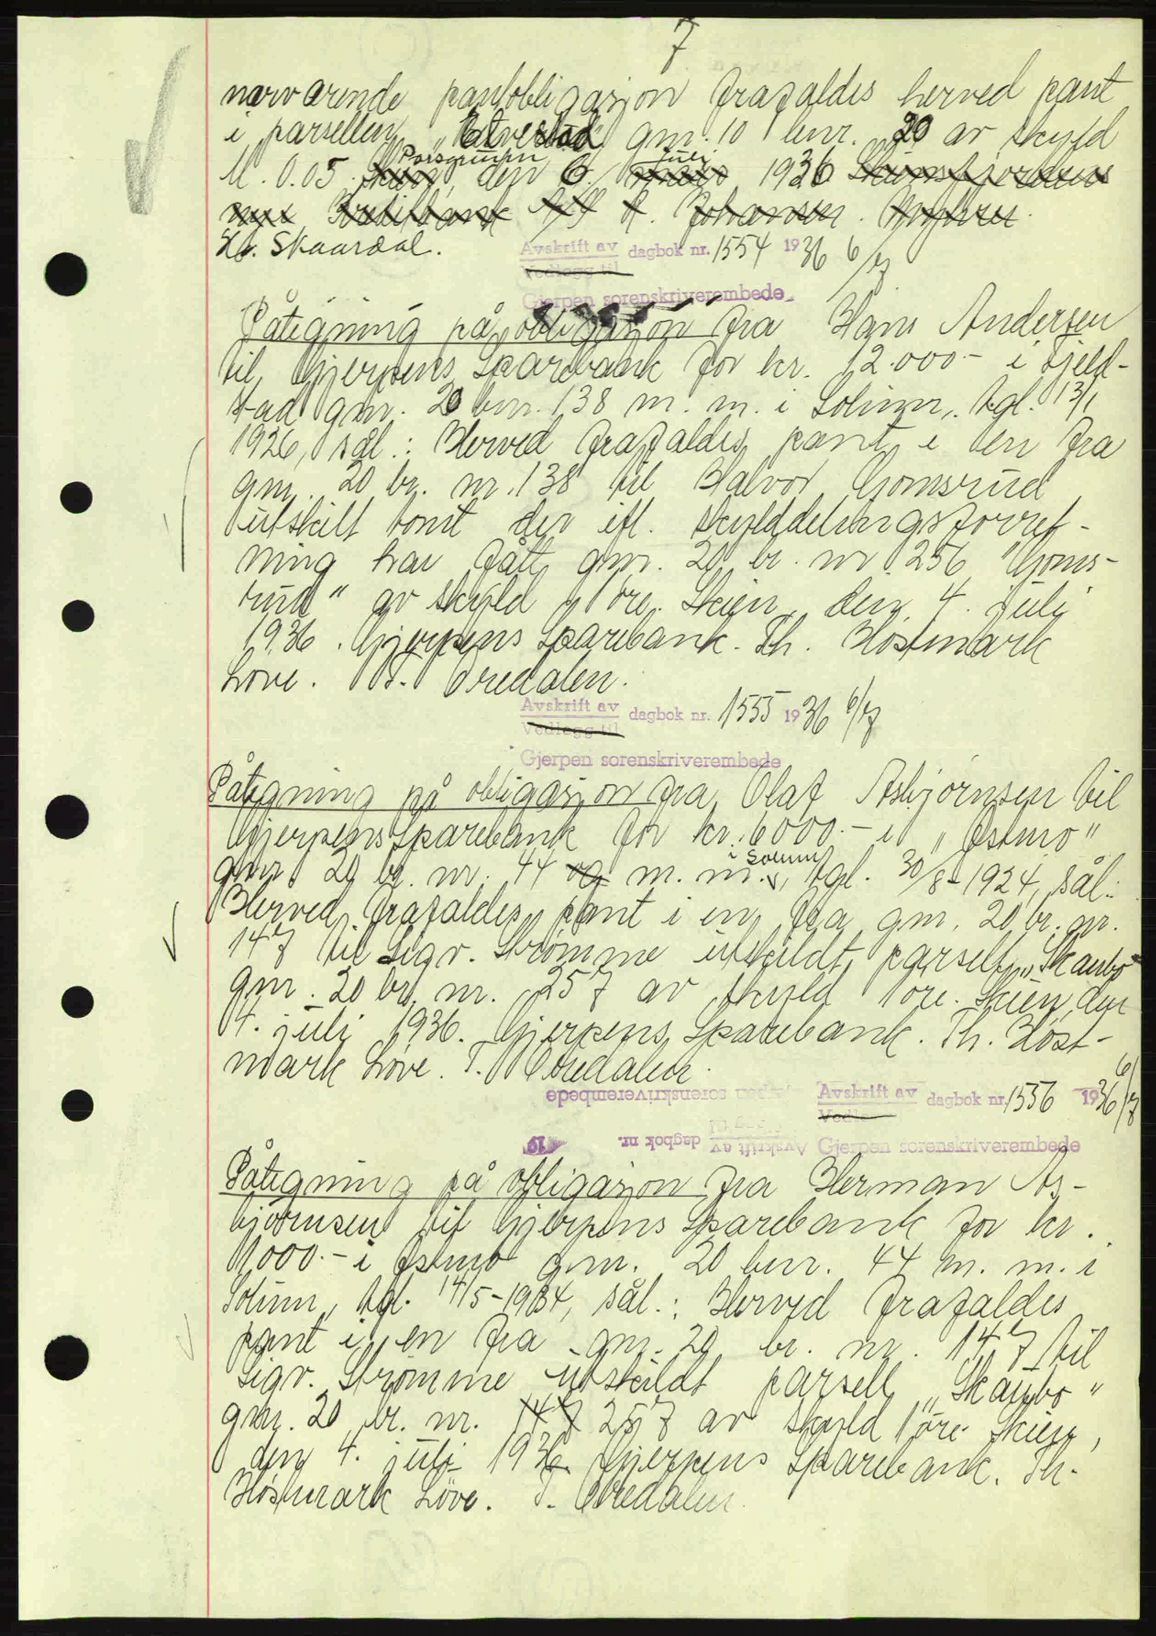 7
nærværende pantobligasjon frafaldes herved pant
i parsellen gnr. 10 bnr. 20 av skyld
M. 0.05. Porsgrunn, den 6. juli 1936
Skaardal.
Avskrift av dagbok nr. 1554 1936 6/7
Vedlegg til
Gjerpen sorenskriverembede
Påtegning på obligasjon fra Hans Andersen
til Gjerpens Sparebank for kr. 12.000.- i Fjeld-
stad gnr. 20 bnr. 138 m. m. i Solum, tgl. 13/1
1926, sål.: Herved frafaldes pant i en fra
gnr. 20 br. nr. 138 til Halvor Gomsrud
utskilt tomt der ifl. skylddelingsforret-
ning har fått gnr. 20 br. nr. 256 "Goms-
rud" av skyld 1 øre. Skien, den 4. juli
1936. Gjerpens Sparebank. Th. Høstmark
Løve. T. Oredalen.
Avskrift av dagbok nr. 1555 1936 6/7
Vedlegg til
Gjerpen sorenskriverembede
Påtegning på obligasjon fra Olaf Asbjørnsen til
Gjerpens Sparebank for kr. 6000.- i „Østmo"
gnr. 20 br. nr. 44 og m. m. i Solum, tgl. 30/8-1924, sål.:
Herved frafaldes pant i en fra gnr. 20 br. nr.
147 til Sigv. Strømme utskildt parsell, „Skaubo"
gnr. 20 br. nr. 257 av skyld 1 øre. Skien, den
4. juli 1936. Gjerpens Sparebank. Th. Høst-
mark Løve. T. Oredalen.
Avskrift av dagbok nr. 1556 1936 6/7
Gjerpen sorenskriverembede
Påtegning på obligasjon fra Herman As-
bjørnsen til Gjerpens Sparebank for kr.
1000.- i Østmo gnr. 20 bnr. 44 m. m. i
Solum, tgl. 14/5-1934, sål.: Herved frafaldes
pant i en fra gnr. 20 br. nr. 147 til
Sigv. Strømme utskildt parsell „Skaubo"
gnr. 20 br. nr. 147 257 av skyld 1 øre. Skien,
den 4. juli 1936. Gjerpens Sparebank. Th.
Høstmark Løve. T. Oredalen.